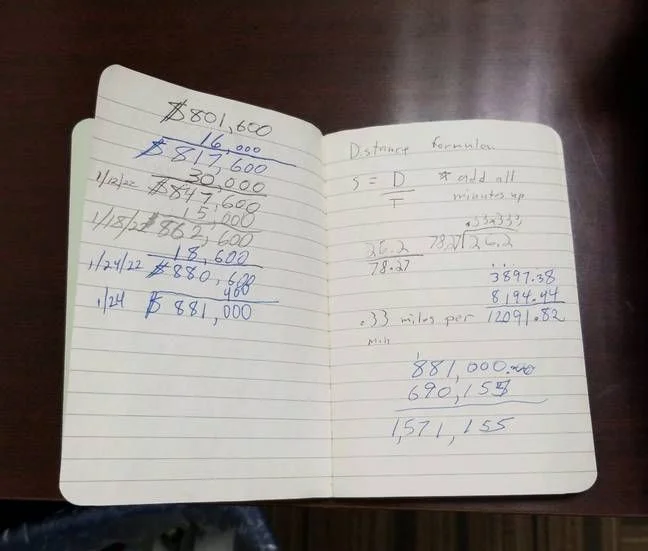 $801,600
16,000
$817,600
30,000
1/12/22 $847,600
15,000
1/18/22 $862,600
18,600
1/24/22 $880,600
400
1/24 $881,000
Distance formulou
S = D
T
* add all
minutes up
.33333
26.2
78.27
78.27 26.2
3897.38
8194.44
12091.82
.33 miles per
Min
1
881,000.00
690,155
1,571,155